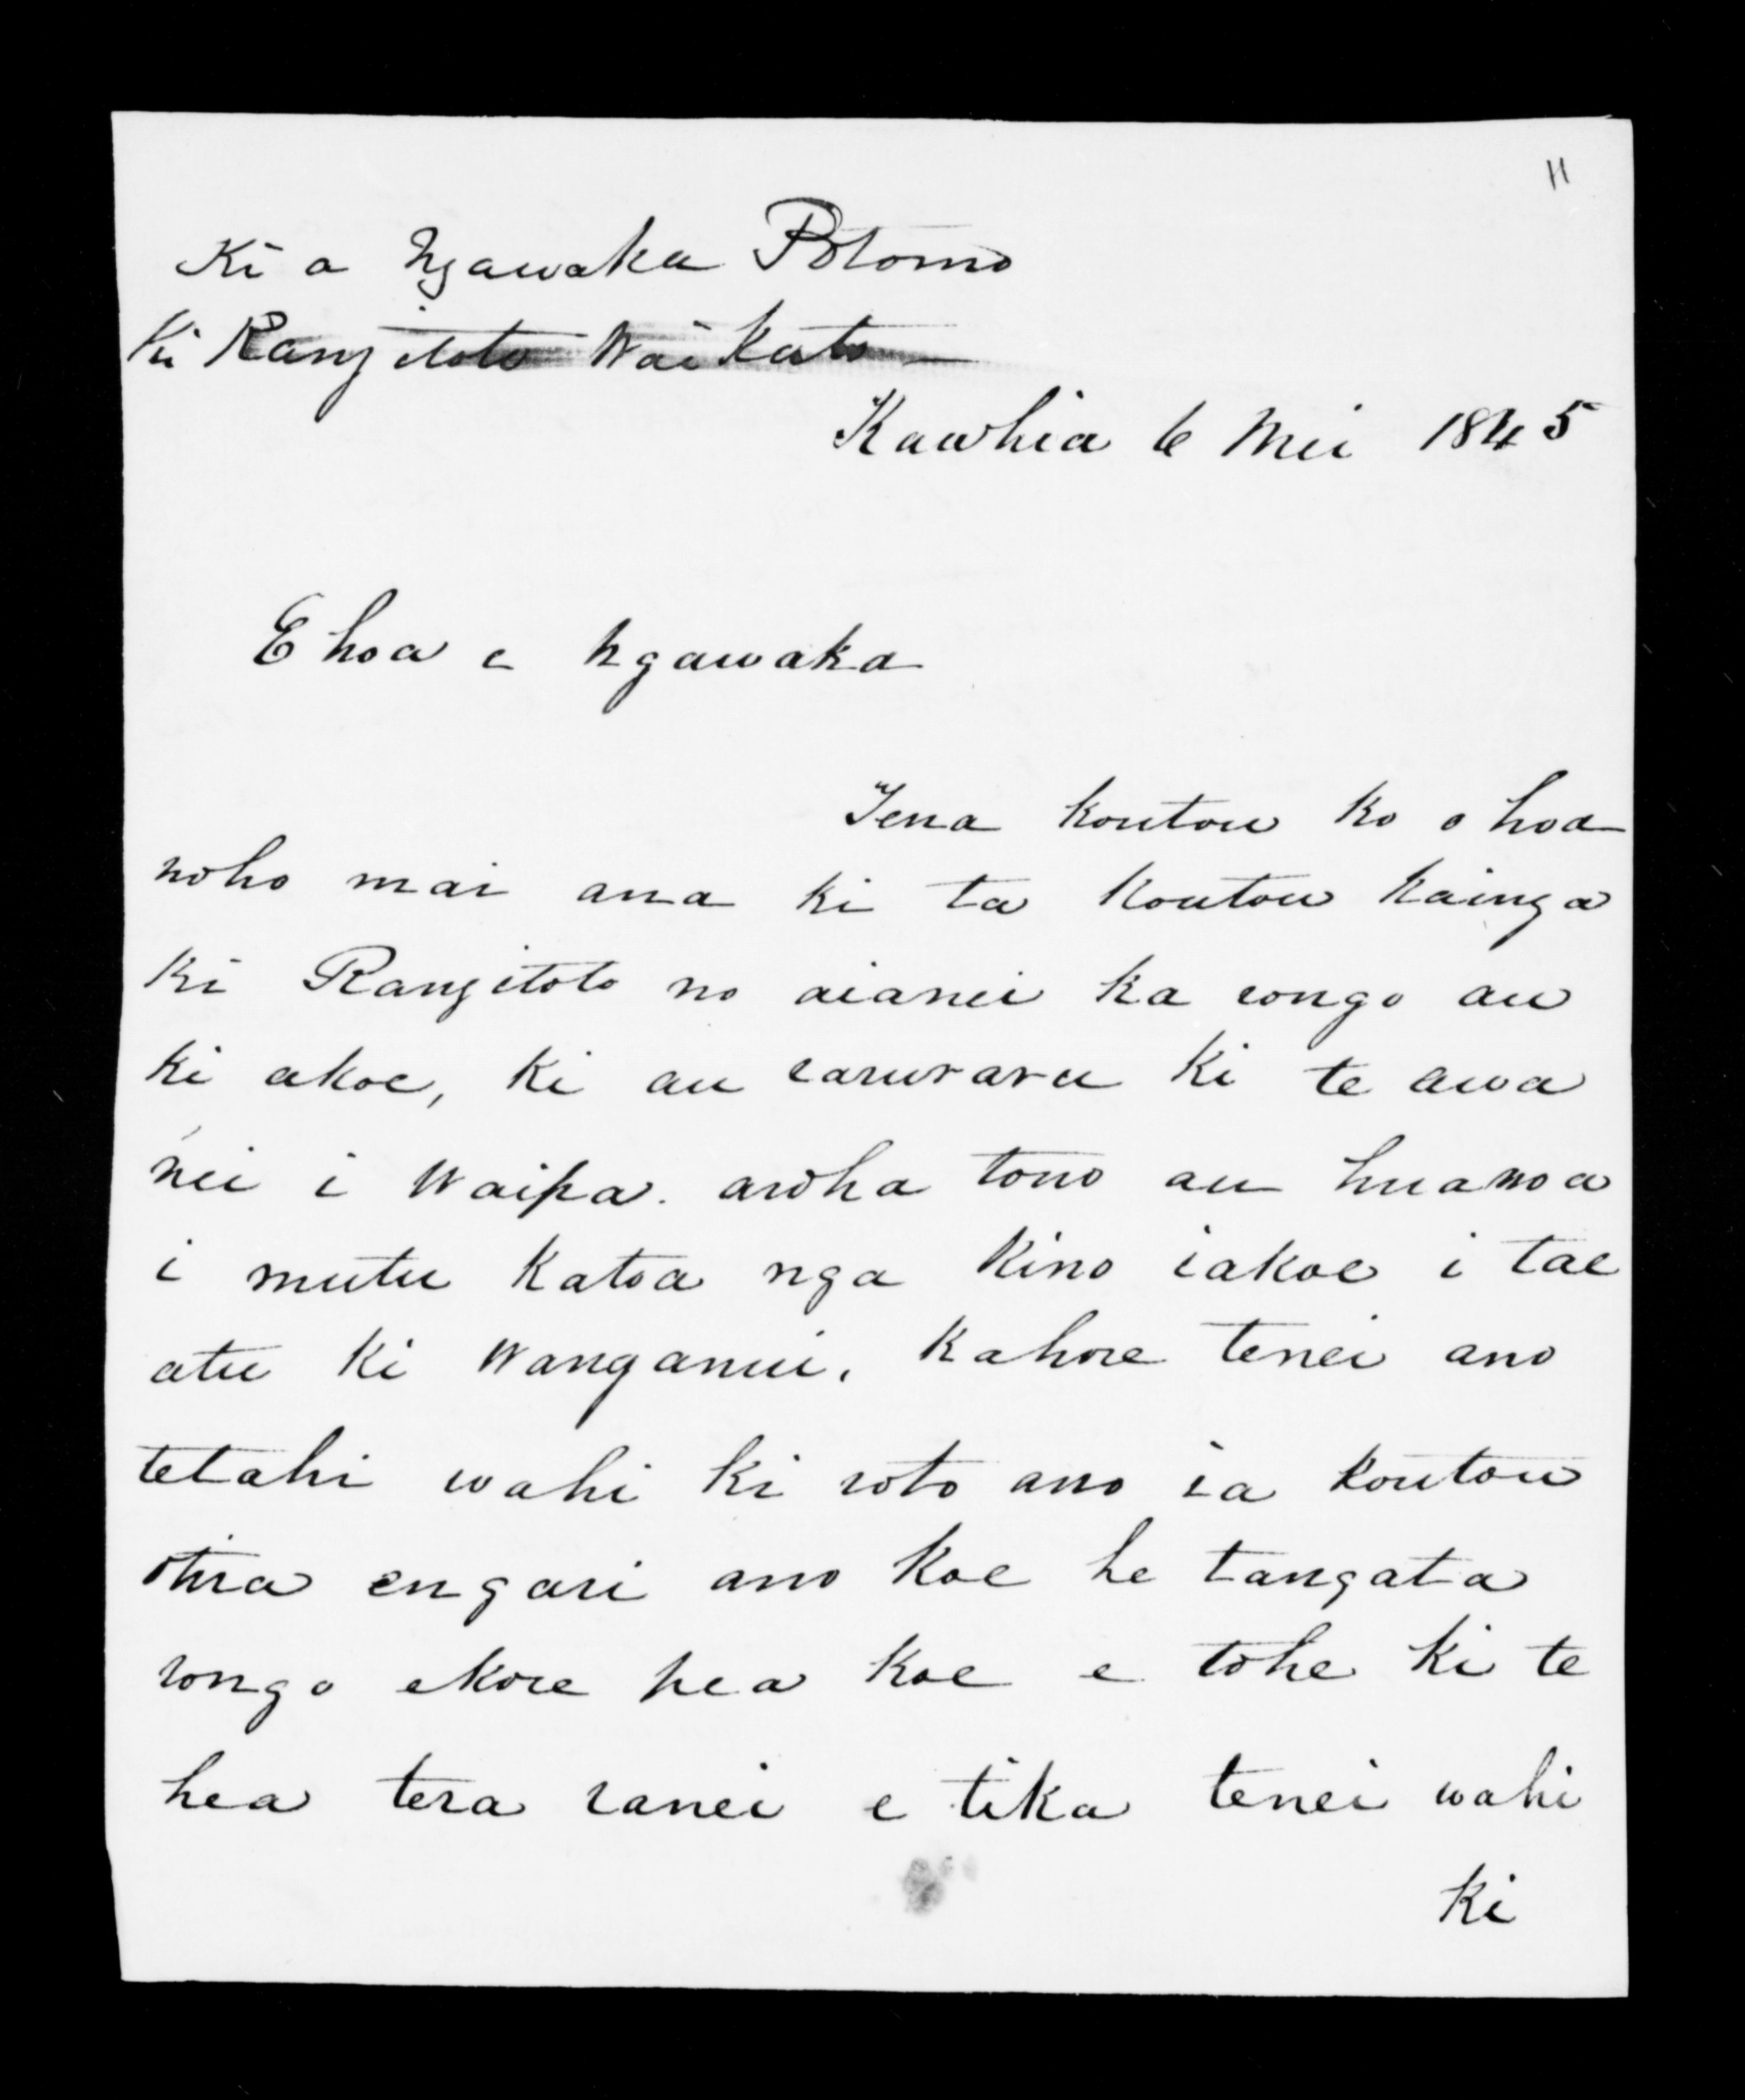 11
Ki a Ngawaka Potomo
Ki Rangitoto Waikato
Kawhia 6 Mei 1845
E hoa e Ngawaka
Tena koutou ko o hoa
noho mai ana ki ta koutou kainga
ki Rangitoto no aianei ka rongo au
ki akoe, ki au raruraru ki te awa
nei i Waipa. aroha tono au huanoa
i mutu katoa nga kino iakoe i tae
atu ki Wanganui. Kahore tenei ano
tetahi wahi ki roto ano ia koutou
otira engari ano koe he tangata
rongo ekore pea koe e tohe ki te
hea tera ranei e tika tenei wahi
ki